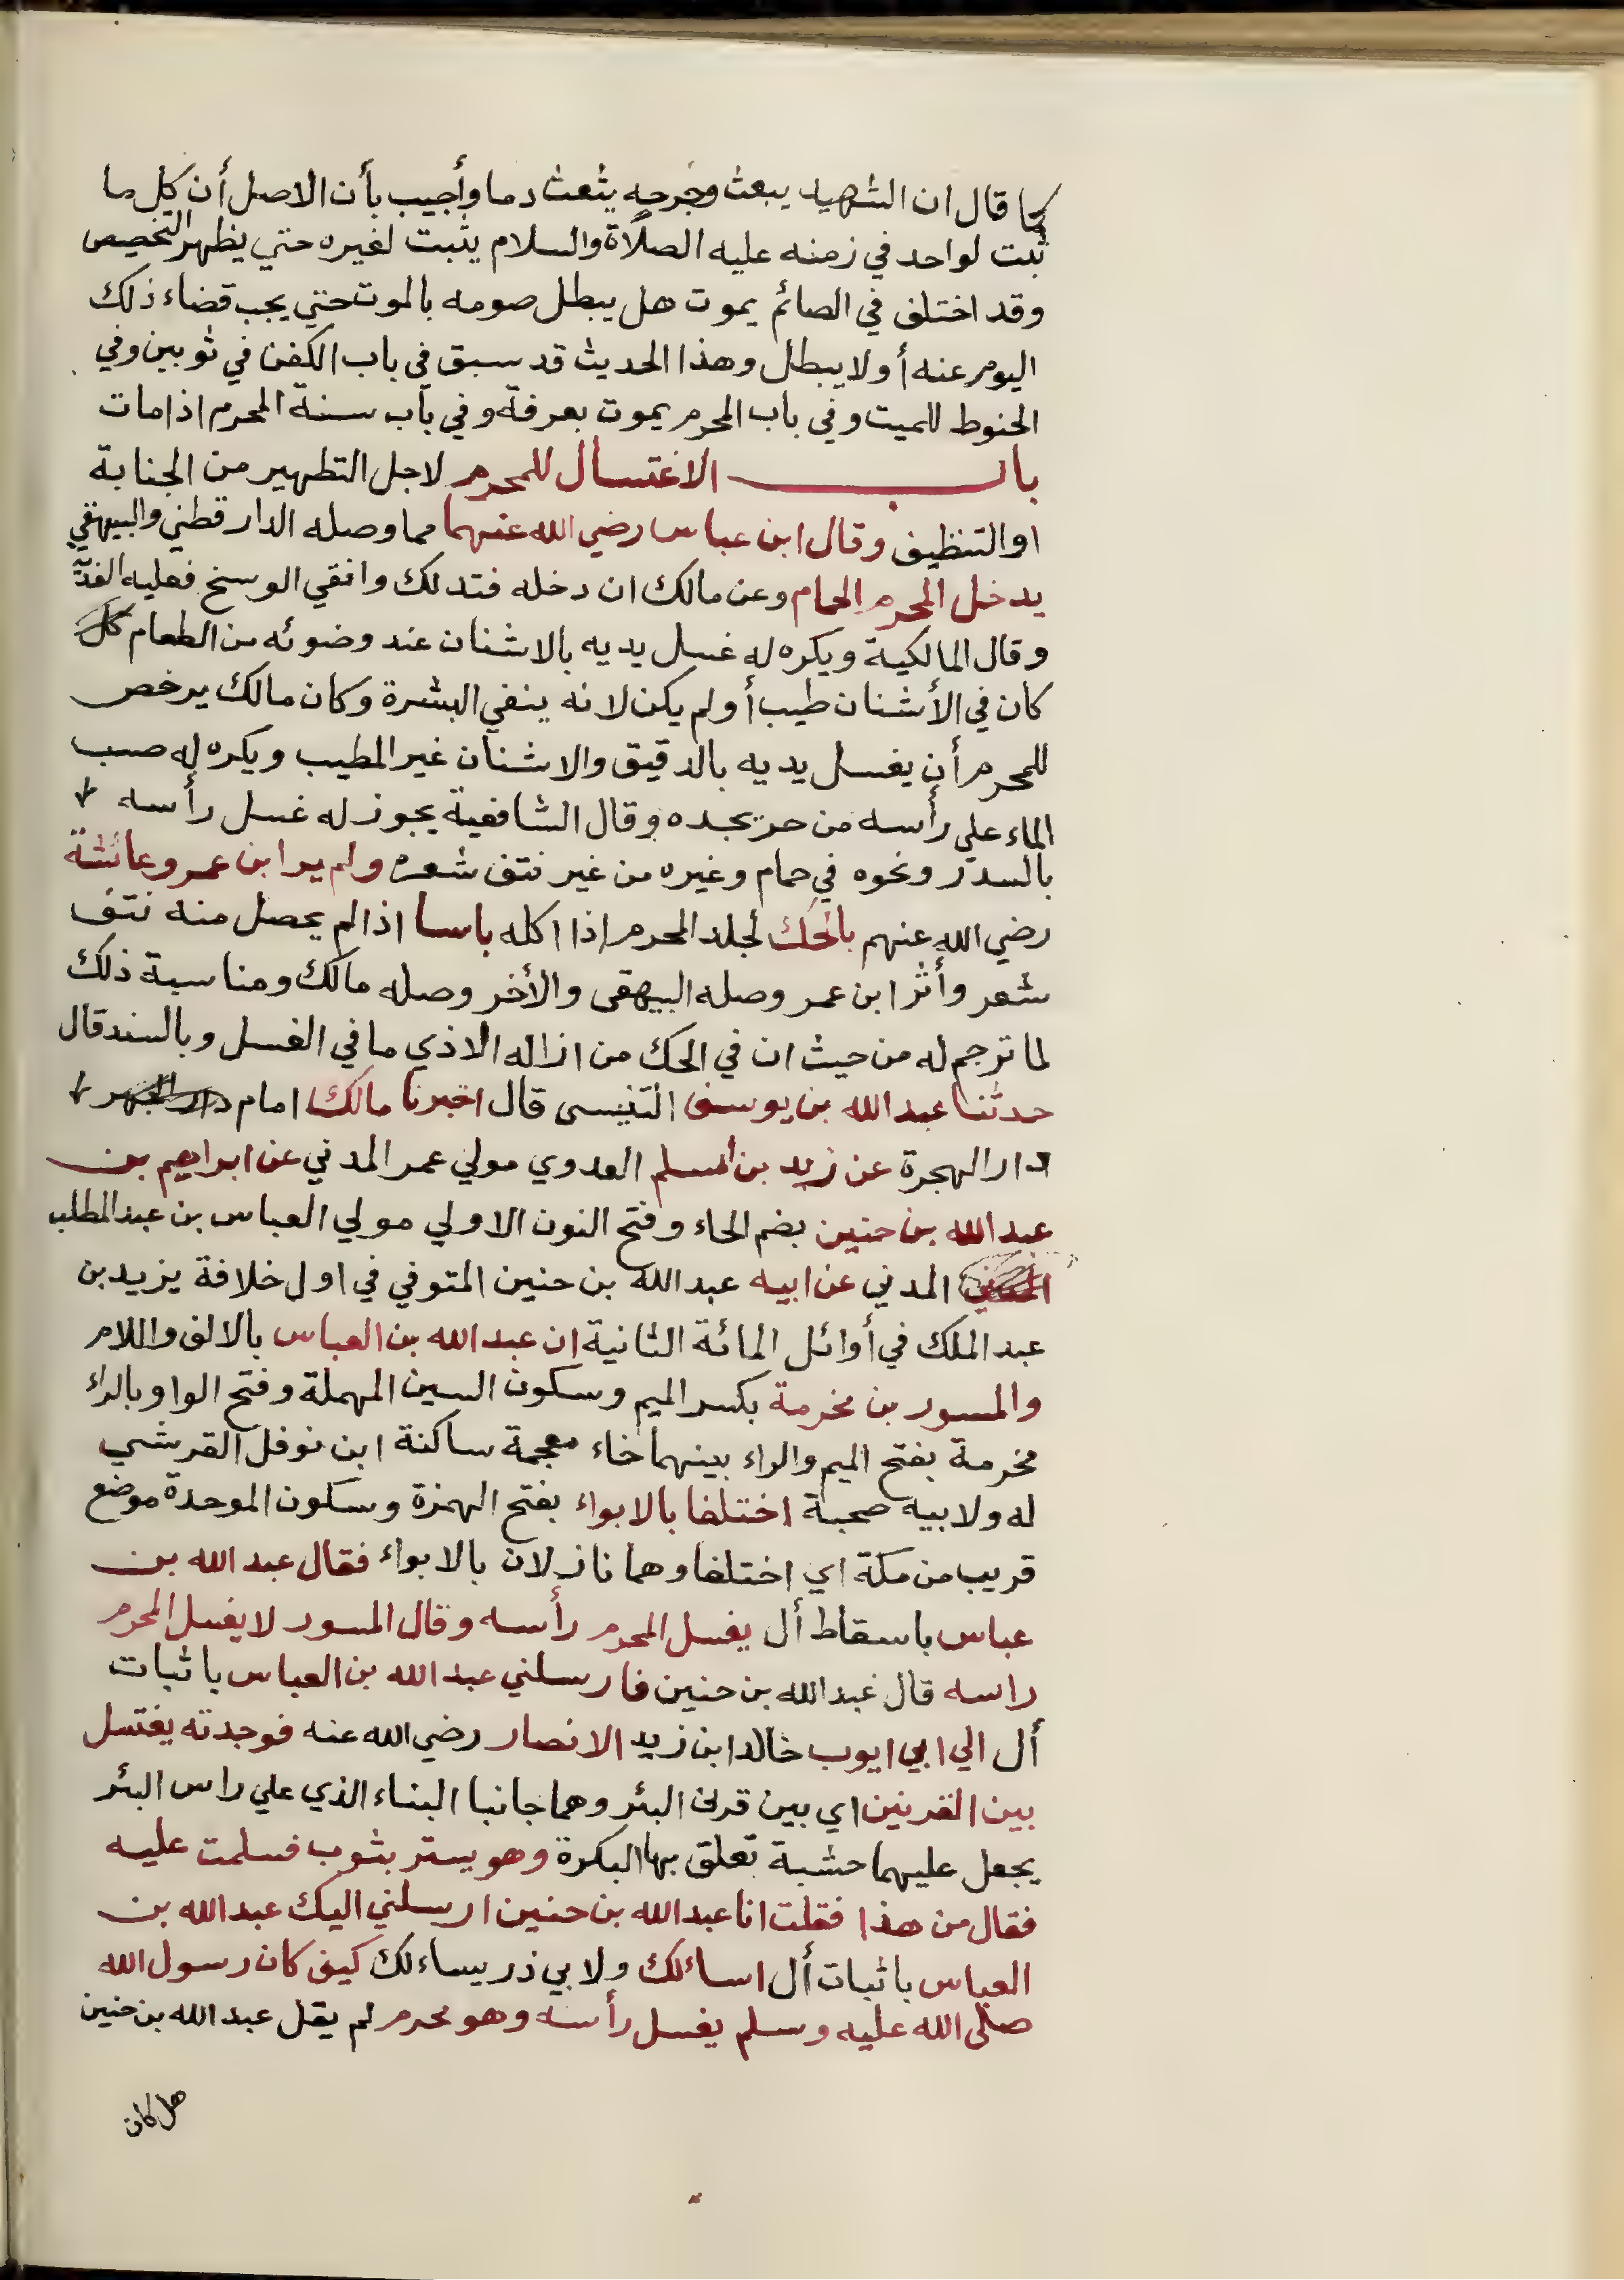 كما قال ان الشهيد يبعث وجرحه يثعث دما وأجيب بأن الاصل أن كل ما
ثبت لواحد في زمنه عليه الصلاة والسلام يثبت لغيره حتي يظهر التخصيص
وقد اختلف في الصائم يموت هل يبطل صومه بالموت حتي يجب قضاء ذلك
اليوم عنه أو لا يبطل وهذا الحديث قد سبق في باب الكفن في ثوبين وفي
الحنوط للميت وفي باب المحرم يموت بعرفة وفي باب سنة المحرم اذا مات
باب الاغتسال للمحرم لاجل التطهير من الجنابة
او التنظيف وقال ابن عباس رضي الله عنهما مما وصله الدار قطني والبيهقي
يدخل المحرم الحمام وعن مالك ان دخله فتدلك وانقي الوسخ فعليه الفدية
وقال المالكية ويكره له غسل يديه بالاشنان عند وضوئه من الطعام
كان في الأشنان طيب أو لم يكن لانه ينفي البشرة وكان مالك يرخص
للمحرم أن يغسل يديه بالدقيق والاشنان غير المطيب ويكره له صب
الماء علي رأسه من حر يجده وقال الشافعية يجوز له غسل رأسه
بالسدر ونحوه في حمام وغيره من غير نتف شعره ولم ير ابن عمر وعائشة
رضي الله عنهم بالحك لجلد المحرم اذا اكله باسا اذا لم يحصل منه نتف
شعر وأثر ابن عمر وصله البيهقى والأخر وصله مالك ومناسبة ذلك
لما ترجم له من حيث ان في الحك من ازاله الاذي ما في الغسل وبالسند قال
حدثنا عبد الله بن يوسف التنيسى قال اخبرنا مالك امام
دار الهجرة عن زيد بن اسلم العدوي مولي عمر المدني عن ابراهيم بن
عبد الله بن حنين بضم الحاء وفتح النون الاولي مولي العباس بن عبد المطلب
المدني عن ابيه عبد الله بن حنين المتوفي في اول خلافة يزيد بن
عبد الملك في أوائل المائة الثانية ان عبد الله بن العباس بالالف واللام
والمسور بن مخرمة بكسر الميم وسكون السين المهملة وفتح الواو بالراء
مخرمة بفتح الميم والراء بينهما خاء معجمة ساكنة ابن نوفل القرشي
له ولابيه صحبة اختلفا بالابواء بفتح الهمزة وسكون الموحدة موضع
قريب من مكة اي اختلفا وهما نازلان بالابواء فقال عبد الله بن
عباس باسقاط أل يغسل المحرم رأسه وقال المسور لا يغسل المحرم
راسه قال عبد الله بن حنين فارسلني عبد الله بن العباس باثبات
أل الي ابي ايوب خالد ابن زيد الانصار رضي الله عنه فوجدته يغتسل
بين القرنين اي بين قرنى البئر وهما جانبا البناء الذي علي راس البئر
يجعل عليهما خشبة تعلق بها البكرة وهو يستر بثوب فسلمت عليه
فقال من هذا فقلت انا عبد الله بن حنين ارسلني اليك عبد الله بن
العباس باثبات أل اسائلك ولابي ذر يساءلك كيف كان رسول الله
صلى الله عليه وسلم يغسل رأسه وهو محرم لم يقل عبد الله بن حنين
هل كان